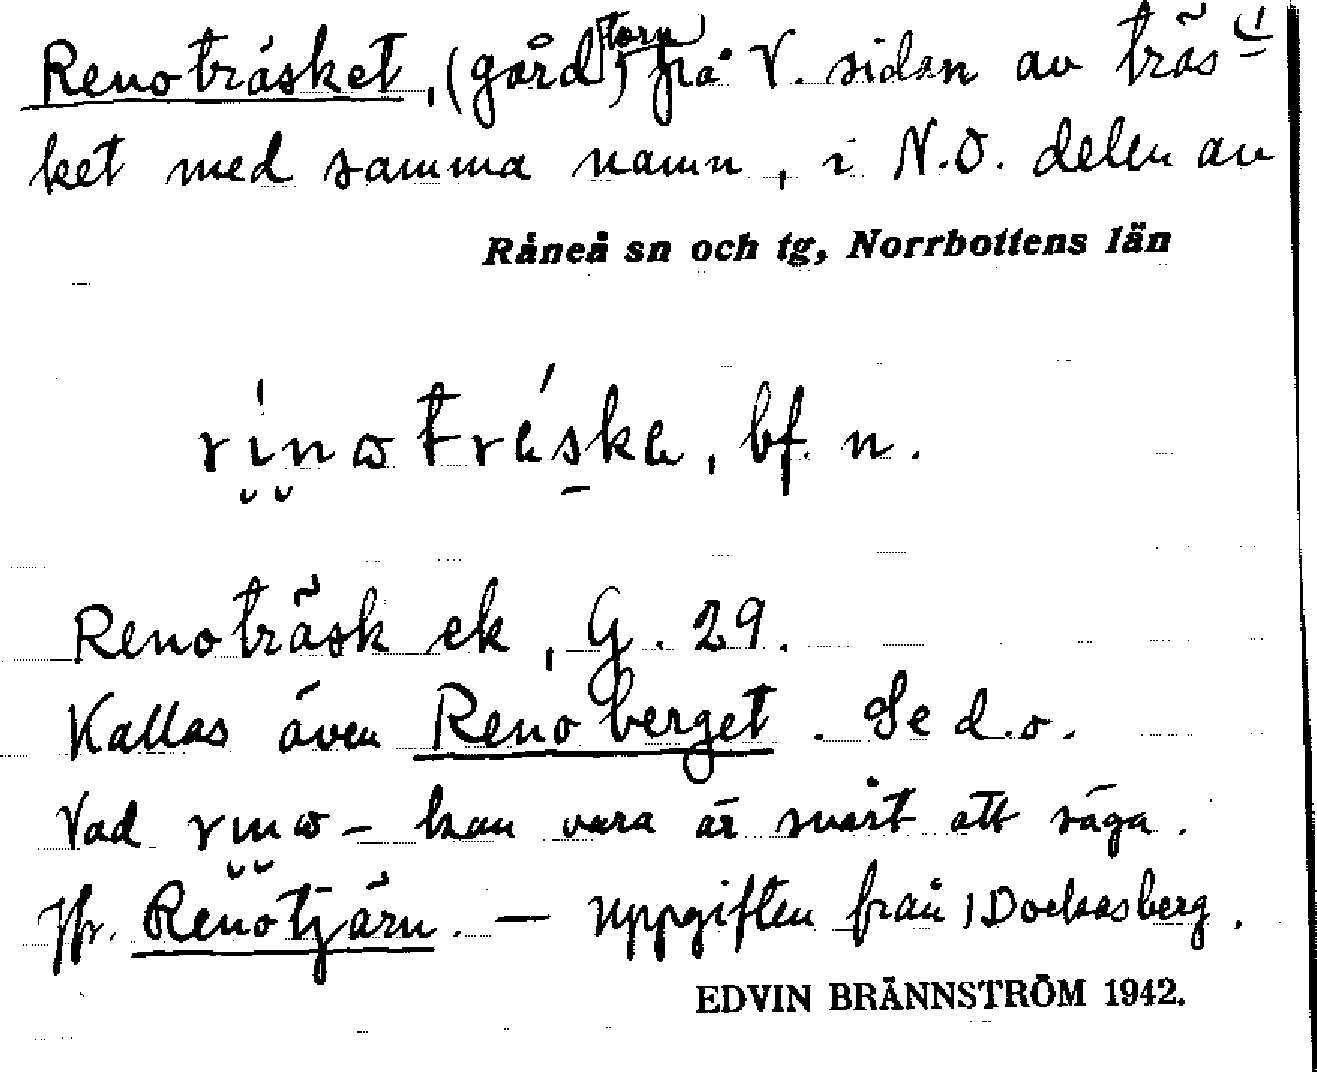 Renoträsket, (gård) torp på V. sidan av träs-
ket med samma namn, i N.O. delen av
Råneå sn och tg, Norrbottens län
bf. n.
Renoträsk ek, G. 29.
Kallas även Renoberget. Se d.o.
Vad kan vara är svårt att säga.
Jfr. Renotjärn. — Uppgiften från Dockasberg.
EDVIN BRÄNNSTRÖM 1942.